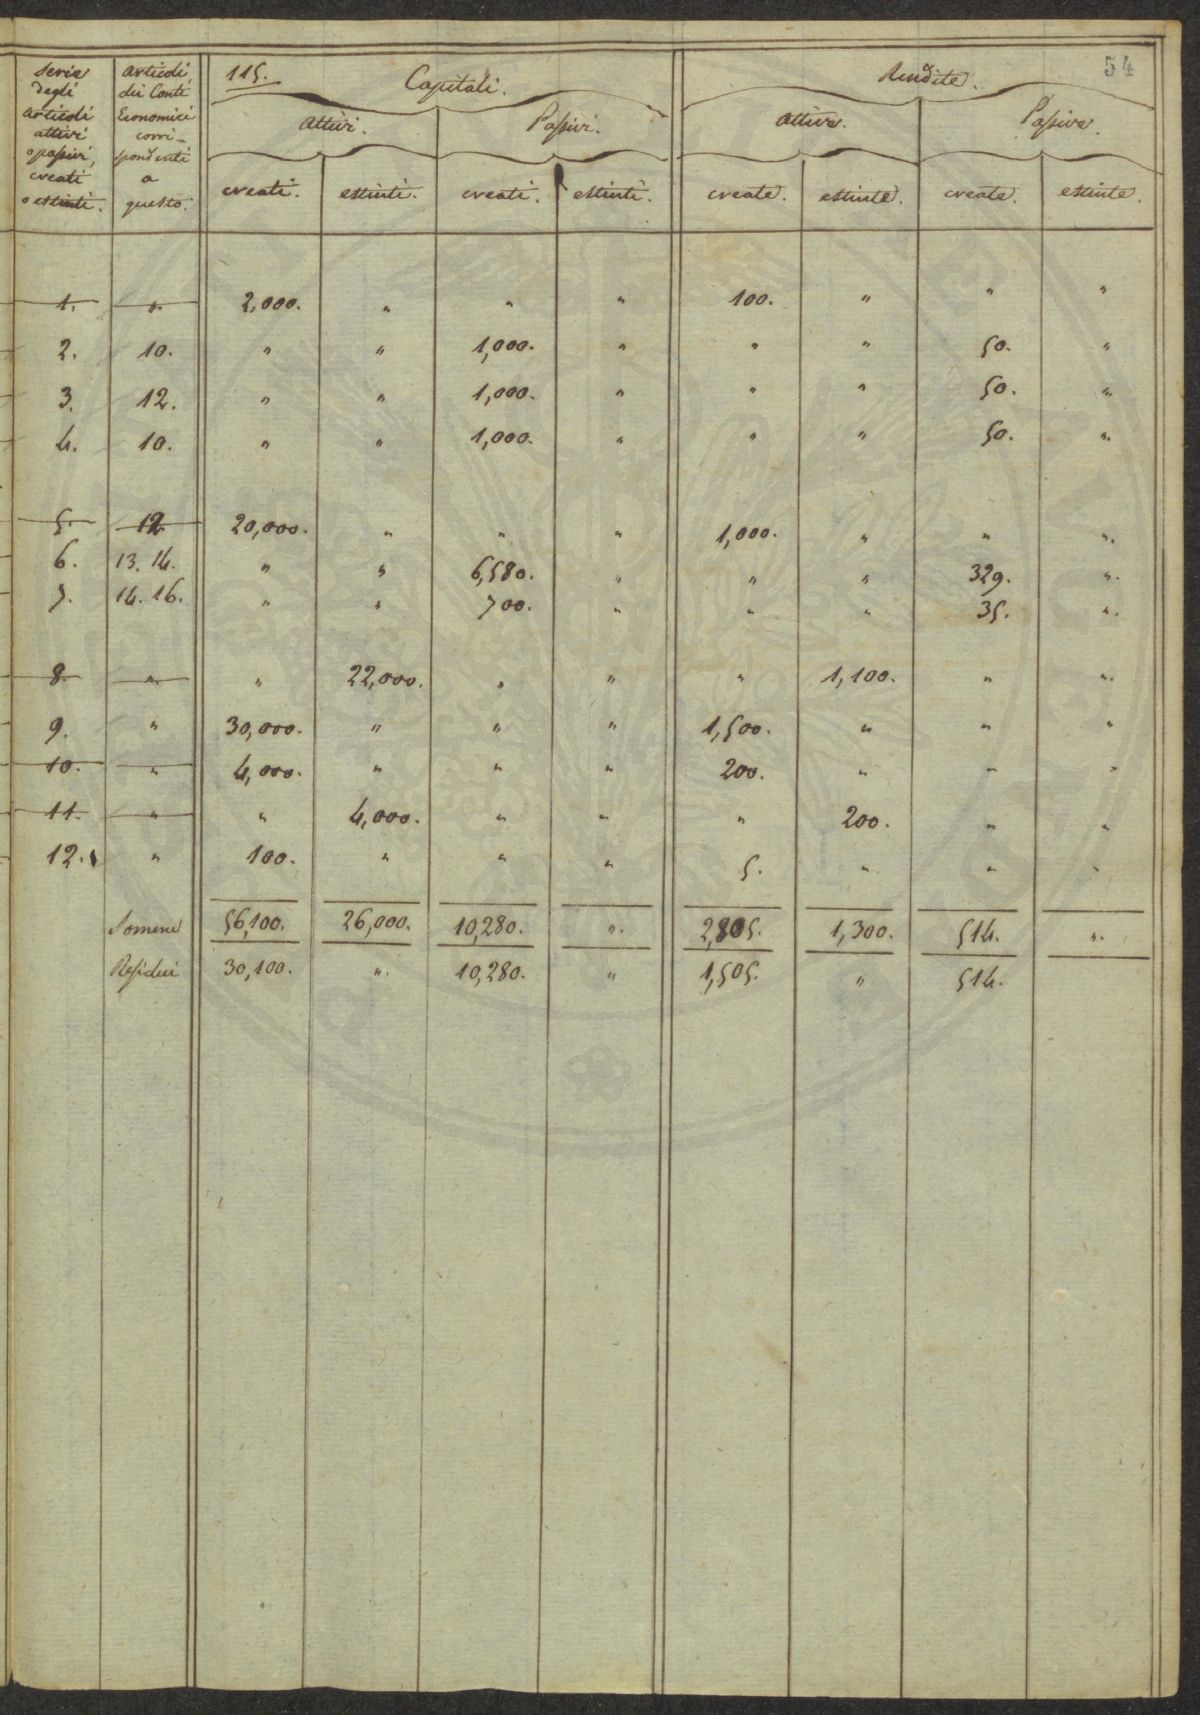 54
115. Capitali. Rendite.
Serie degli Articoli attivi o passivi, creati o estinti.
Articoli dei Conti Economici corri-spondenti a questo.
Attivi. Passivi. Attive. Passive.
creati. estinti. creati. estinti. create. estinte. create. estinte.
1. " 2,000. " " " 100. " " "
2. 10. " " 1,000. " " " 50. "
3. 12. " " 1,000. " " " 50. "
4. 10. " " 1,000. " " " 50. "
5. 12. 20,000. " " " 1,000. " " "
6. 13. 14. " " 6,580. " " " 329. "
7. 14. 16. " " 700. " " " 35. "
8. " " 22,000. " " " 1,100. " "
9. " 30,000. " " " 1,500. " " "
10. " 4,000. " " " 200. " " "
11. " " 4,000. " " " 200. " "
12. " 100. " " " 5. " " "
Somme 56,100. 26,000. 10,280. " 2,805. 1,300. 514. "
Residui 30,100. " 10,280. " 1,505. " 514.